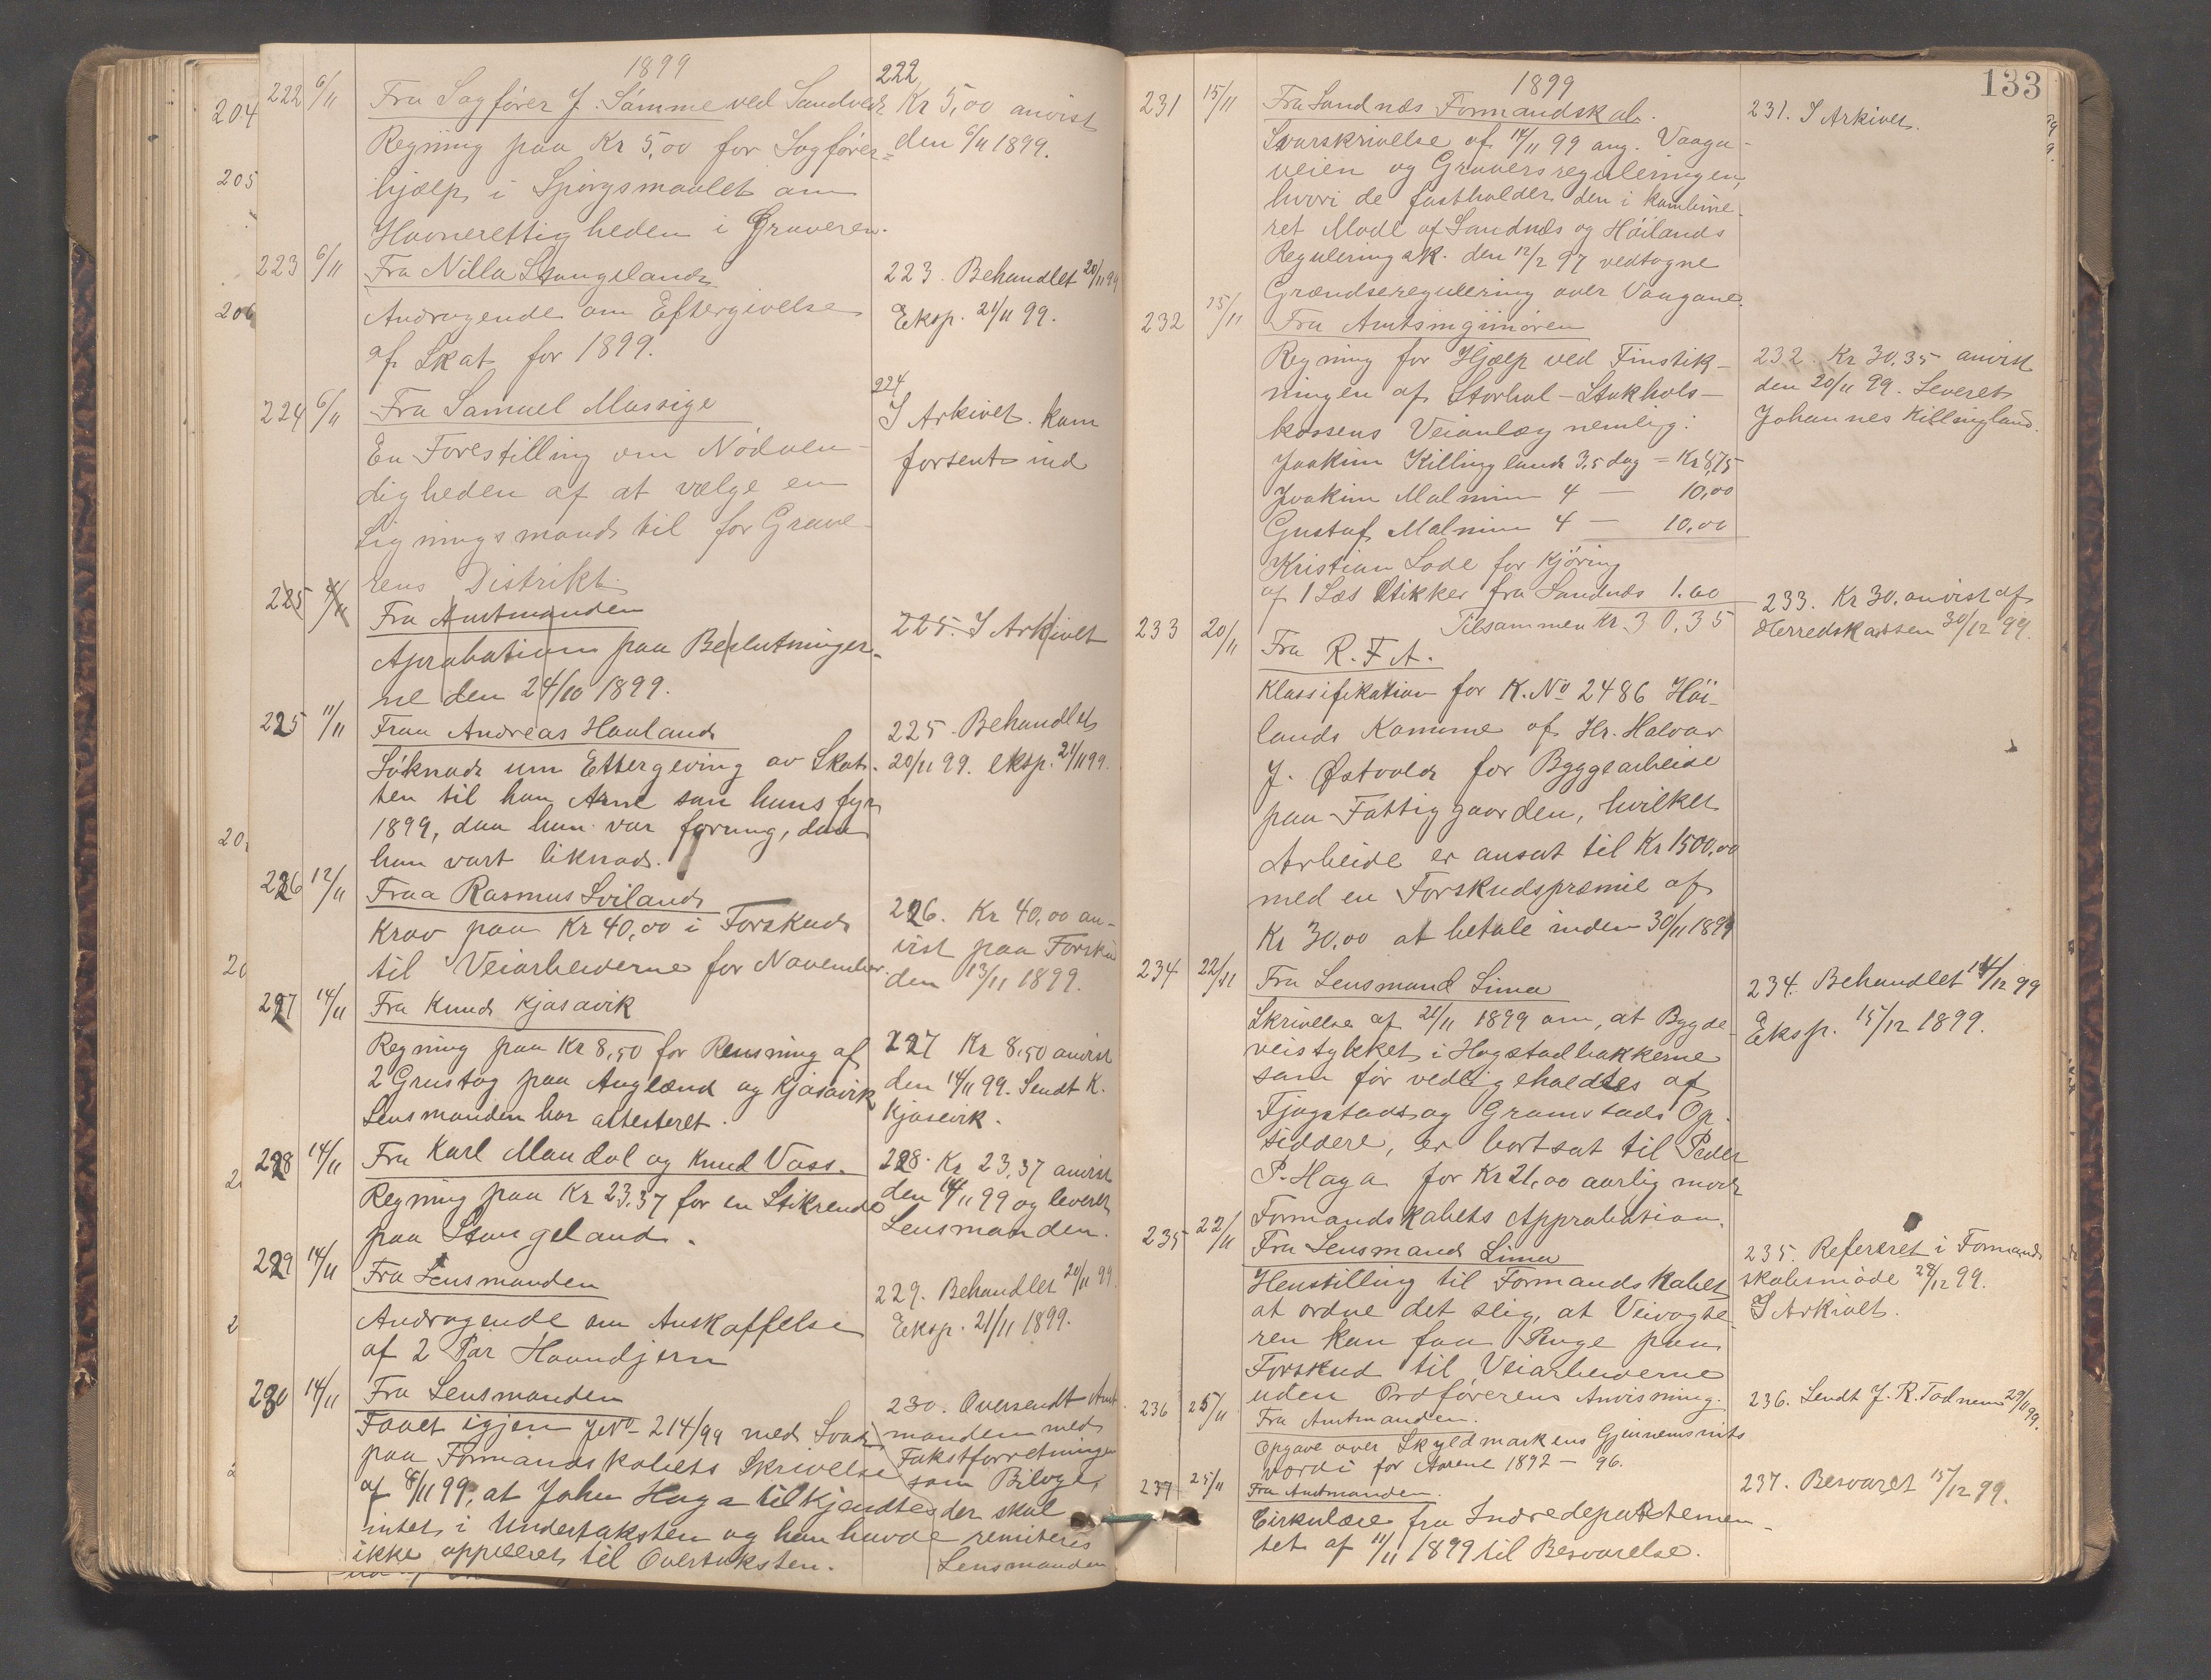 1899
222 6/11 Fra Sagfører J. Sømme ved Sandved
Regning paa Kr 5,00 for Sagfører=
hjælp i Spörgsmaalet om
Havnerettigheden i Graveren.
222
Kr 5,00 anvist
den 6/11 1899.
223 6/11 Fra Nilla Stangeland
Andragende om Eftergivelse
af Skat for 1899.
223. Behandlet 20/11 99
Eksp. 21/11 99.
224 6/11 Fra Samuel Massige
En Forestilling om Nødven-
digheden af at vælge en
Ligningsmand til for Grave-
rens Distrikt.
224
I Arkivet. kom
forsent ind
225 4/11 Fra Amtmanden
Aprobation paa Beslutninger-
ne den 24/10 1899.
225. I Arkivet
225 11/11 Fraa Andreas Hauland
Söknad um Ettergeving av Skat-
ten til han Arne son hans fyr
1899, daa han var forung, daa
han vart liknad.
225. Behandlet
20/11 99. eksp. 21/11 99.
226 12/11 Fraa Rasmus Sviland
Krav paa Kr 40,00 i Forskud
til Veiarbeiderne for November.
226. Kr 40,00 an-
vist paa Forskud
den 13/11 1899.
227 14/11 Fra Knud Kjosavik
Regning paa Kr 8,50 for Rensning af
2 Grustag paa Auglænd og Kjosavik
Lensmanden har attesteret.
227 Kr 8,50 anvist
den 14/11 99. Sendt K.
Kjosevik.
228 14/11 Fra Karl Maudal og Knud Vass.
Regning paa Kr 23,37 for en Stikrende
paa Stangeland.
228. Kr 23,37 anvist
den 14/11 99 og leveret
Lensmanden.
229 14/11 Fra Lensmanden
Andragende om Anskaffelse
af 2 Par Haandjern
229. Behandlet 20/11 99.
Eksp. 21/11 1899.
230 14/11 Fra Lensmanden
Faaet igjen J.No 214/99 med Svar
paa Formandskabets Skrivelse
af 8/11 99, at John Haga tilkjendtes
intet i Undertaksten og han havde
ikke appelleret til Overtaksten.
230. Oversendt Amt-
manden med
Takstforretningen
som Bilage,
der skal
remiteres
Lensmanden
204
205
206
133
1899
231 15/11 Fra Sandnæs Formandskab.
Svarskrivelse af 14/11 99 ang. Vaaga-
veien og Graversreguleringen,
hvori de fastholder den i kombine-
ret Møde af Sandnæs og Höilands
Reguleringsk. den 12/2 97 vedtagne
Grændseregulering over Vaagane.
231. I Arkivet.
232 15/11 Fra Amtsinginiøren
Regning for Hjælp ved Finstik-
ningen af Storhol-Stokhols-
kossens Veianlæg nemlig:
Joakim Killingland 3,5 dag = Kr 8,75
Joakim Malmin 4 — 10,00
Gustaf Malmin 4 — 10,00
Kristian Lode for Kjöring
af 1 Læs Stikker fra Sandnæs 1.60
Tilsammen Kr. 30,35
232. Kr 30.35 anvist
den 20/11 99. Leveret
Johannes Killingland.
233 20/11 Fra R. F. A.
Klassifikation for K. No 2486 Höi-
lands Komune af Hr. Halvar
J. Østvold for Byggearbeide
paa Fattiggaarden, hvilket
Arbeide er ansat til Kr 1500,00
med en Forskudspræmie af
Kr 30.00 at betale inden 30/11 1899
233. Kr 30. anvist af
Herredskassen 30/12 99.
234 22/11 Fra Lensmand Lima
Skrivelse af 21/11 1899 om, at Bygde-
veistykket i Hogstadbakkerne
som för vedligeholdtes af
Fjogstads og Gramstads Op-
siddere, er bortsat til Peder
P. Haga for Kr 21,00 aarlig mod
Formandskabets Approbation.
234. Behandlet 14/12 99
Eksp. 15/12 1899.
235 22/11 Fra Lensmand Lima
Henstilling til Formandskabet
at ordne det slig, at Veivogte-
ren kan faa Penge paa
Forskud til Veiarbeiderne
uden Ordförerens Anvisning.
235. Refereret i Formand-
skabsmöde 28/12 99.
I Arkivet.
236 25/11 Fra Amtmanden.
Opgave over Skyldmarkens Gjennemsnits
værdi for Aarene 1892 – 96.
236. Sendt J. R. Todnem 29/11 99.
237 25/11 Fra Amtmanden.
Cirkulære fra Indredepartemen-
tet af 11/11 1899 til Besvarelse.
237. Besvaret 15/12 99.